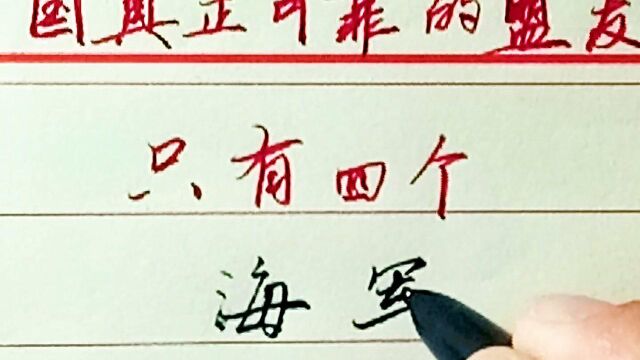 国真正可靠的盟友
只有四个
海军